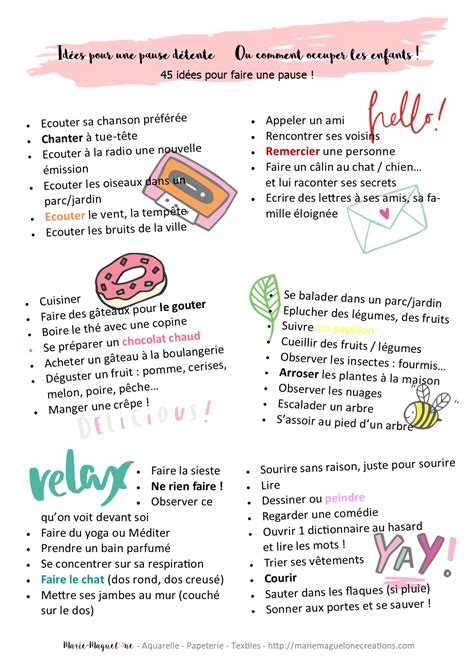 Idées pour une pause détente Ou comment occuper les enfants !
45 idées pour faire une pause !
Ecouter sa chanson préférée
Chanter à tue-tête
Ecouter à la radio une nouvelle
émission
Ecouter les oiseaux dans un
parc/jardin
Ecouter le vent, la tempête
Ecouter les bruits de la ville
hello!
Appeler un ami
Rencontrer ses voisins
Remercier une personne
Faire un câlin au chat / chien…
et lui raconter ses secrets
Ecrire des lettres à ses amis, sa fa-
mille éloignée
Cuisiner
Faire des gâteaux pour le gouter
Boire le thé avec une copine
Se préparer un chocolat chaud
Acheter un gâteau à la boulangerie
Déguster un fruit : pomme, cerises,
melon, poire, pêche…
Manger une crêpe !
DELICIOUS!
Se balader dans un parc/jardin
Eplucher des légumes, des fruits
Suivre un papillon
Cueillir des fruits / légumes
Observer les insectes : fourmis…
Arroser les plantes à la maison
Observer les nuages
Escalader un arbre
S’assoir au pied d’un arbre
relax
Faire la sieste
Ne rien faire !
Observer ce
qu’on voit devant soi
Faire du yoga ou Méditer
Prendre un bain parfumé
Se concentrer sur sa respiration
Faire le chat (dos rond, dos creusé)
Mettre ses jambes au mur (couché
sur le dos)
Sourire sans raison, juste pour sourire
Lire
Dessiner ou peindre
Regarder une comédie
Ouvrir 1 dictionnaire au hasard
et lire les mots !
Trier ses vêtements
Courir
Sauter dans les flaques (si pluie)
Sonner aux portes et se sauver !
YAY!
Marie-Maguelone - Aquarelle - Papeterie - Textiles - http://mariemaguelonecreations.com